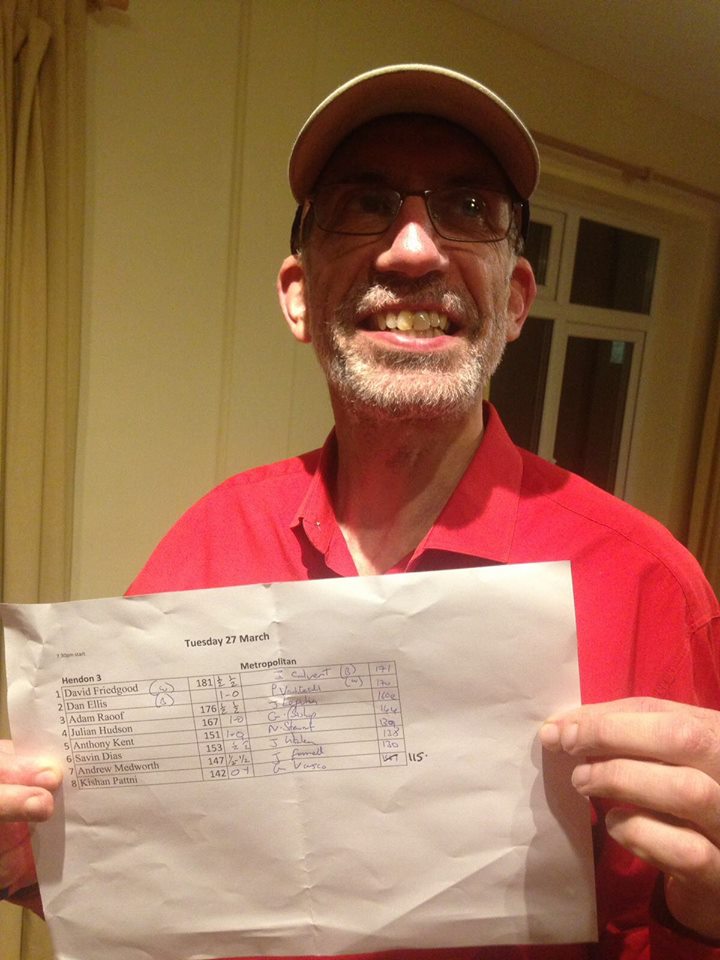 Tuesday 27 March
7:30pm start
Hendon 3 Metropolitan
1 David Friedgood (W) 181 ½ ½ J Calvert (B) 171
2 Dan Ellis (B) 1-0 (W) 170
3 Adam Raoof 176 ½ ½ J
4 Julian Hudson 167 1-0 G. Bishop 144
5 Anthony Kent 151 1-0 N. Stewart 139
6 Savin Dias 153 ½ ½ J 138
7 Andrew Medworth 147 ½-½ J Farrell 130
8 Kishan Pattni 142 0-1 G Vasco 115.